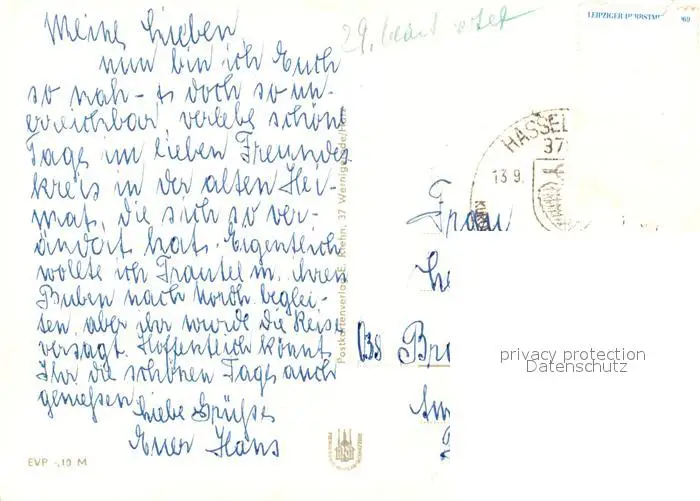 Meine Lieben,
nun bin ich Euch
so nah - u doch so un-
erreichbar, verlebe schöne
Tage im lieben Freundes
kreis in der alten Hei-
mat, die sich so ver-
ändert hat. Eigentlich
wollte ich Trautel m. ihren
Buben nach Nordh. beglei-
ten, aber ihr wurde die Reise
versagt. Hoffentlich könnt
Ihr die schönen Tage auch
genießen
Liebe Grüße
Euer Hans
EVP -,10 M
Postkartenverlag E. Riehn, 37 Wernigerode/Harz
29.
LEIPZIGER HERBSTM 969
HASSEL
37
13.9.
Frau
(38
privacy protection
Datenschutz